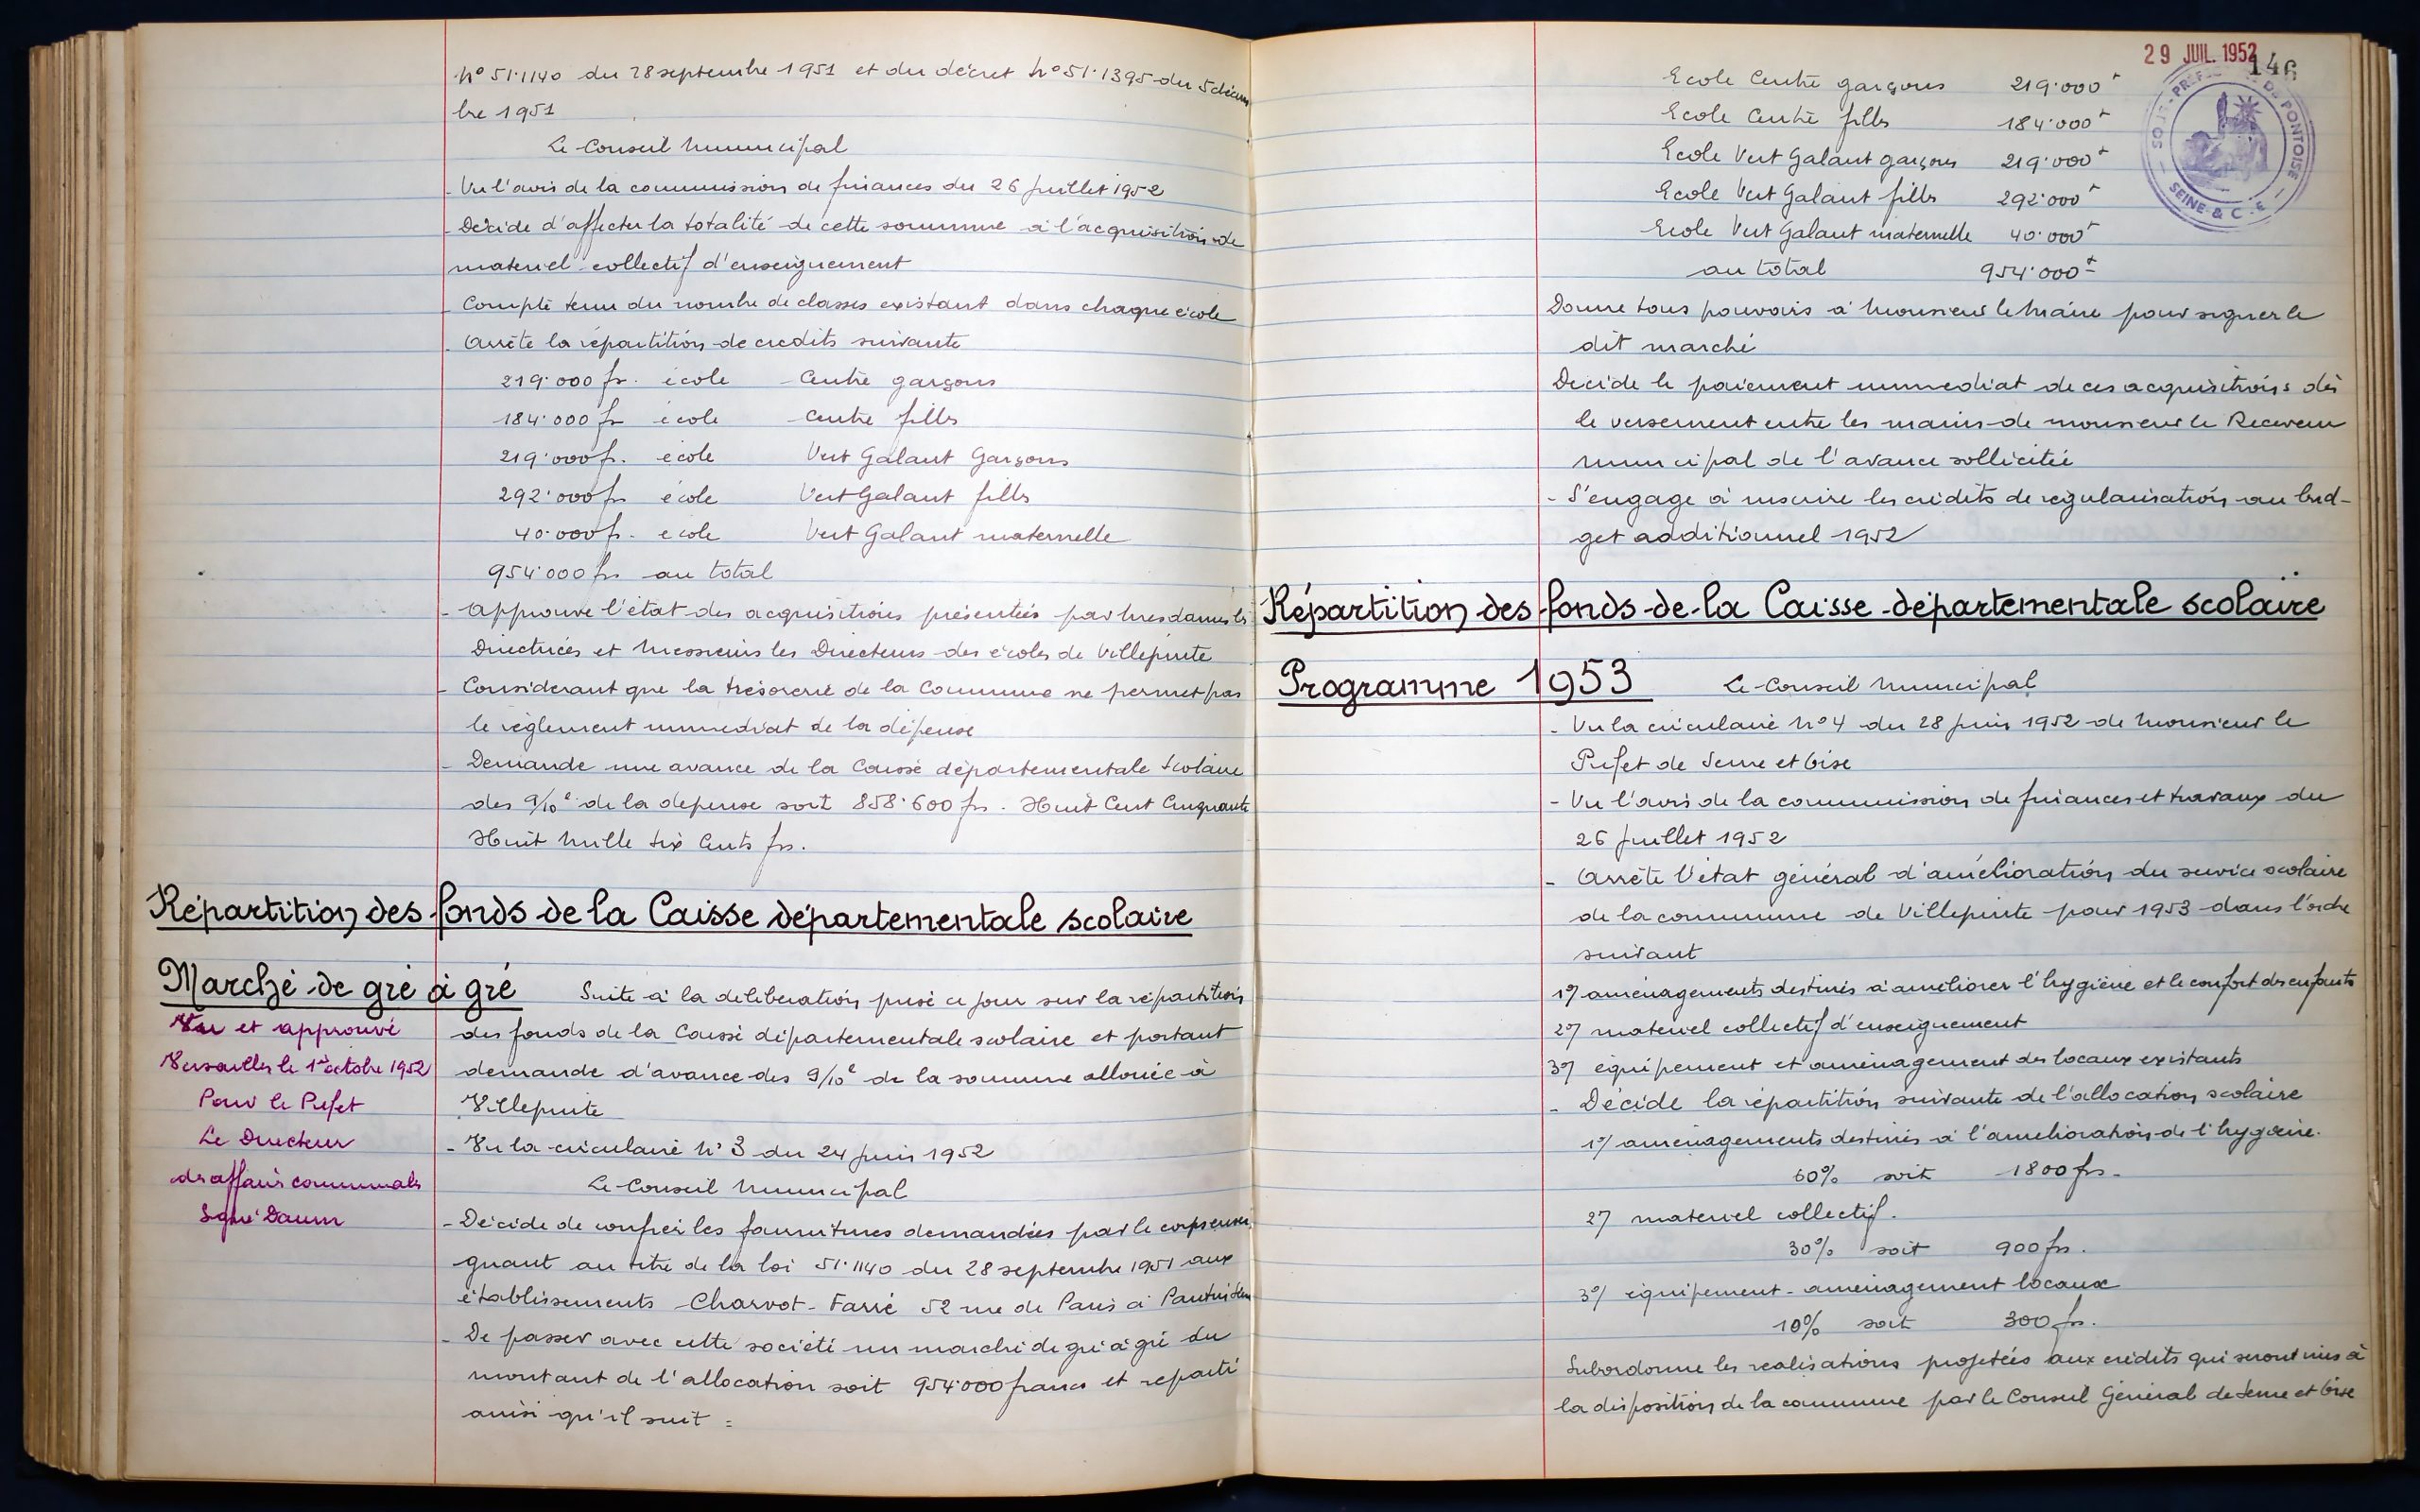 n° 51.1140 du 28 septembre 1951 et du décret n° 51.1395 du 5 décem
bre 1951
Le Conseil Municipal
- Vu l'avis de la commission de finances du 26 Juillet 1952
- Décide d'affecter la totalité de cette somme à l'acquisition de
materiel collectif d'enseignement
- Compte tenu du nombre de classes existant dans chaque école
- Arrête la répartition de credits suivante
219.000 fr. école Centre garçons
184.000 fr école Centre filles
219.000 f. école Vert Galant Garçons
292.000 fr école Vert Galant filles
40.000 fr. école Vert Galant maternelle
954.000 frs au total
- Approuve l'état des acquisitions présentées par Mesdames les
Directrices et Messieurs les Directeurs des écoles de Villepinte
- Considerant que la trésorerie de la Commune ne permet pas
le règlement immediat de la dépense
- Demande une avance de la Caisse départementale Scolaire
des 9/10e de la depense soit 858.600 frs. Huit Cent Cinquante
Huit Mille Six Cents frs.
Répartition des fonds de la Caisse départementale scolaire
Marché de gré à gré
Suite à la deliberation prise ce jour sur la répartition
des fonds de la Caisse départementale scolaire et portant
demande d'avance des 9/10e de la somme allouée à
Villepinte
- Vu la circulaire N° 3 du 24 juin 1952
Le Conseil Municipal
- Décide de confier les fournitures demandées par le corps ensei
gnant au titre de la loi 51.1140 du 28 septembre 1951 aux
établissements Charvot-Farré 52 rue de Paris à Pantin
- De passer avec cette société un marché de gré à gré du
montant de l'allocation soit 954.000 francs et reparti
ainsi qu'il suit :
Vu et approuvé
Versailles le 1er octobre 1952
Pour le Préfet
Le Directeur
des affaires communales
Signé Daum
29 JUIL. 1952
146
SOUS-PREFECTURE DE PONTOISE
SEINE & O-E
Ecole Centre garçons 219.000 f
Ecole Centre filles 184.000 f
Ecole Vert Galant garçons 219.000 f
Ecole Vert Galant filles 292.000 f
Ecole Vert Galant maternelle 40.000 f
au total 954.000 f
Donne tous pouvoirs à Monsieur le Maire pour signer le
dit marché
Décide le paiement immediat de ces acquisitions dès
le versement entre les mains de monsieur le Receveur
municipal de l'avance sollicitée
- S'engage à inscrire les crédits de régularisation au bud-
get additionnel 1952
Répartition des fonds de la Caisse départementale scolaire
Programme 1953
Le Conseil Municipal
- Vu la circulaire N° 4 du 28 juin 1952 de Monsieur le
Préfet de Seine et Oise
- Vu l'avis de la commission de finances et travaux du
26 Juillet 1952
- Arrête l'état général d'amélioration du service scolaire
de la commune de Villepinte pour 1953 dans l'ordre
suivant
1°/ aménagements destinés à améliorer l'hygiène et le confort des enfants
2°/ materiel collectif d'enseignement
3°/ équipement et aménagement des locaux existants
- Décide la répartition suivante de l'allocation scolaire
1°/ aménagements destinés à l'amélioration de l'hygiène.
60% soit 1800 frs.
2°/ materiel collectif.
30% soit 900 frs.
3°/ équipement - aménagement locaux
10% soit 300 frs.
Subordonne les réalisations projetées aux crédits qui seront mis à
la disposition de la commune par le Conseil Général de Seine et Oise